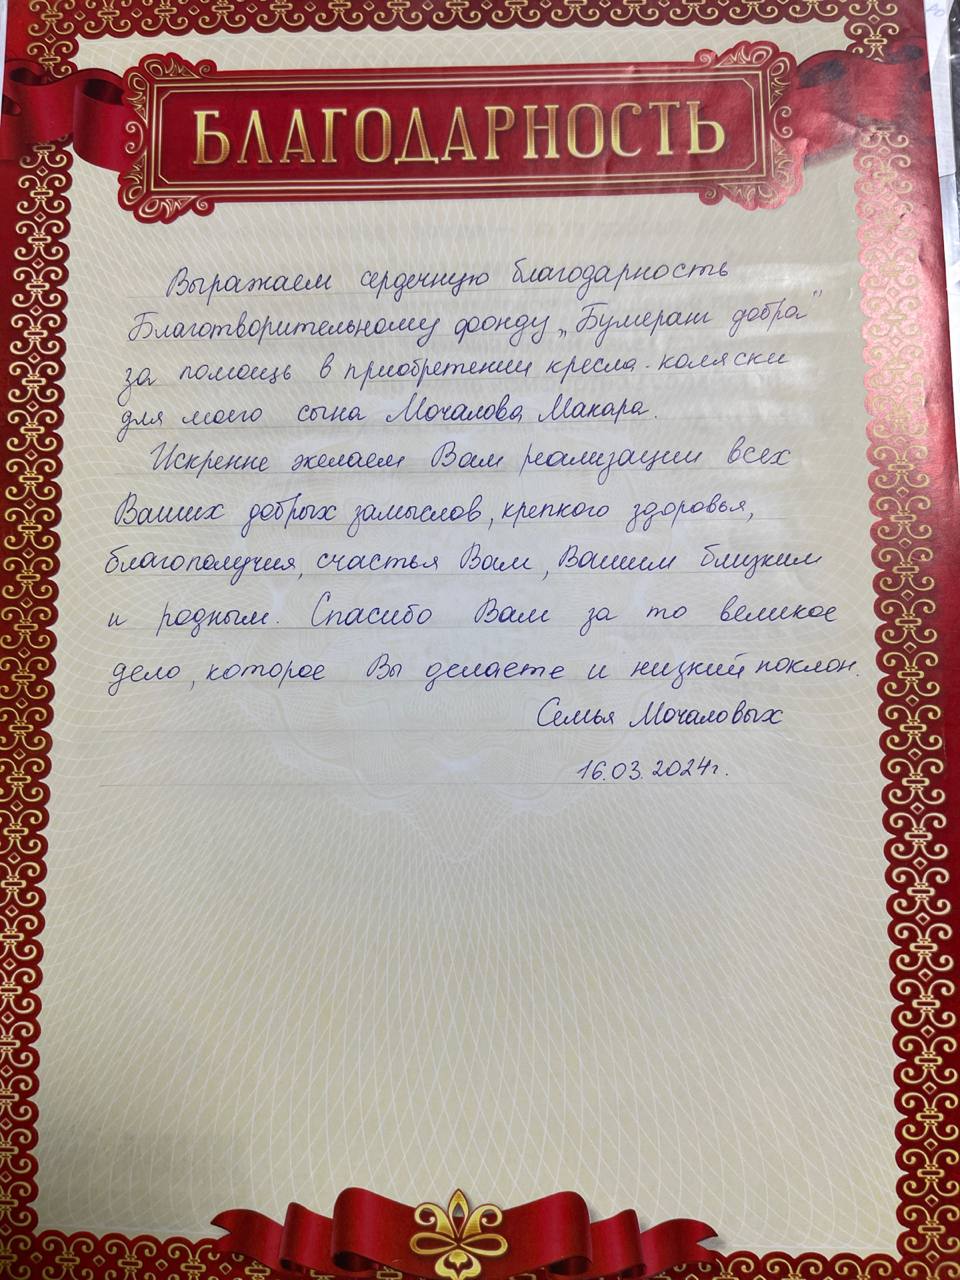 БЛАГОДАРНОСТЬ
Выражаем сердечную благодарность
Благотворительному фонду „Бумеранг добра"
за помощь в приобретении кресла-коляски
для моего сына Мочалова Макара.
Искренне желаем Вам реализации всех
Ваших добрых замыслов, крепкого здоровья,
благополучия, счастья Вам, Вашим близким
и родным. Спасибо Вам за то великое
дело, которое Вы делаете и низкий поклон.
Семья Мочаловых
16.03.2024г.